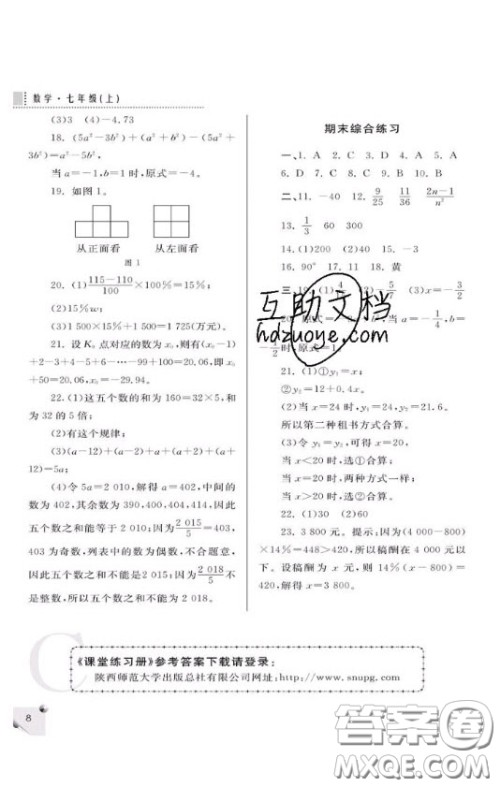 数学·七年级(上)
(3)3 (4)-4.73
18. (5a²-3b²)+(a²+b²)-(5a²+
3b²)=a²-5b².
当 a=-1,b=1 时,原式=-4.
19. 如图 1.
从正面看 从左面看
图 1
20. (1)\frac{115-110}{100}×100%=15%;
(2)15%w;
(3)1 500×15%+1 500=1 725(万元).
21. 设 K₀ 点对应的数为 x₀,则有(x₀-1)
+2-3+4-5+6-…-99+100=20.即 x₀
+50=20.06,解得 x₀=-29.94.
22. (1)这五个数的和为 160=32×5,和
为 32 的 5 倍;
(2)有这个规律;
(3)(a-12)+(a-2)+a+(a+2)+(a+
12)=5a;
(4)令 5a=2 010,解得 a=402,中间的
数为 402,其余数为 390,400,404,414,因此
五个数之和能等于 2 010;\frac{2 015}{5}=403,
403 为奇数,列表中的数为偶数,不合题意,
因此五个数之和不能是 2 015;\frac{2 018}{5}不是
整数,所以五个数之和不能为 2 018.
期末综合练习
一、1. A 2. C 3. D 4. A 5. B
6. D 7. C 8. B 9. A 10. B
二、11. -40 12. \frac{9}{25} \frac{11}{36} \frac{2n-1}{n²}
13. \frac{1}{3} 60 300
14. (1)200 (2)40 15. -3
16. 90° 17. 11 18. 黄
三、19. (1) (2) (3)x=-\frac{3}{2}
20. 原式= 当 a=-\frac{1}{4}, b=
-\frac{1}{2}时,原式=
21. (1)①y₁=x;
②y₂=12+0.4x.
(2)当 x=24 时,y₁=24,y₂=21.6.
所以第二种租书方式合算.
(3)令 y₁=y₂,可得 x=20.
当 x<20 时,选①合算;
当 x=20 时,两种方式一样;
当 x>20 时,选②合算.
22. (1)30 (2)60
23. 3 800 元. 提示:因为(4 000-800)
×14%=448>420,所以稿酬在 4 000 元以
下. 设稿酬为 x 元,则 (x-800)×14%=
420,解得 x=3 800.
互助文档
hdzuoye.com
《课堂练习册》参考答案下载请登录:
陕西师范大学出版总社有限公司网址:http://www.snupg.com
8
答案卷